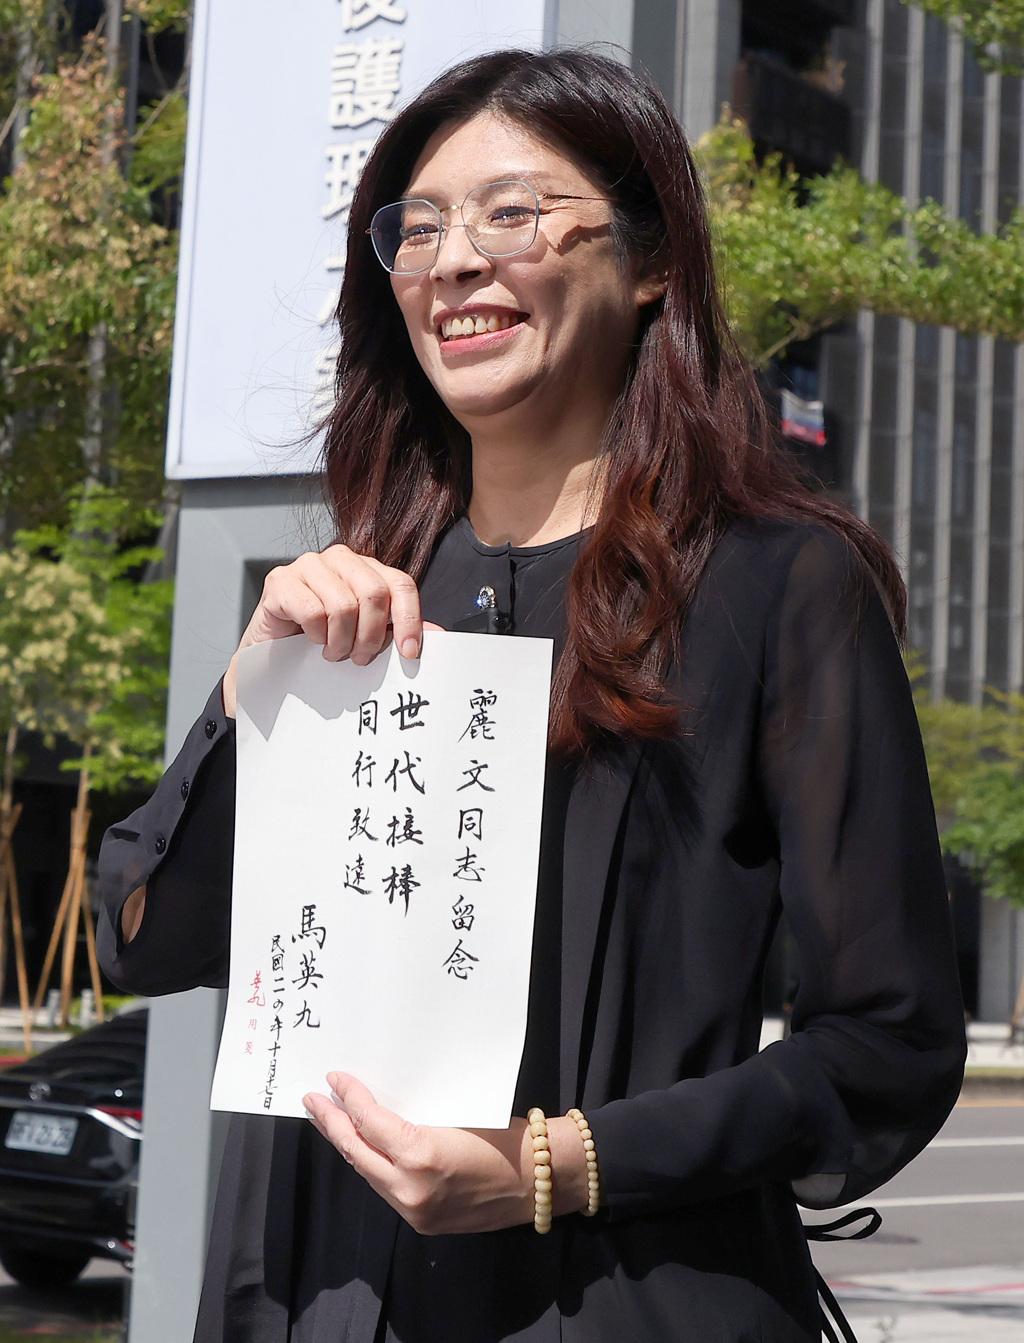 麗文同志留念
世代接棒
同行致遠
馬英九
民國一一四年十月十七日
英九用箋
後護理